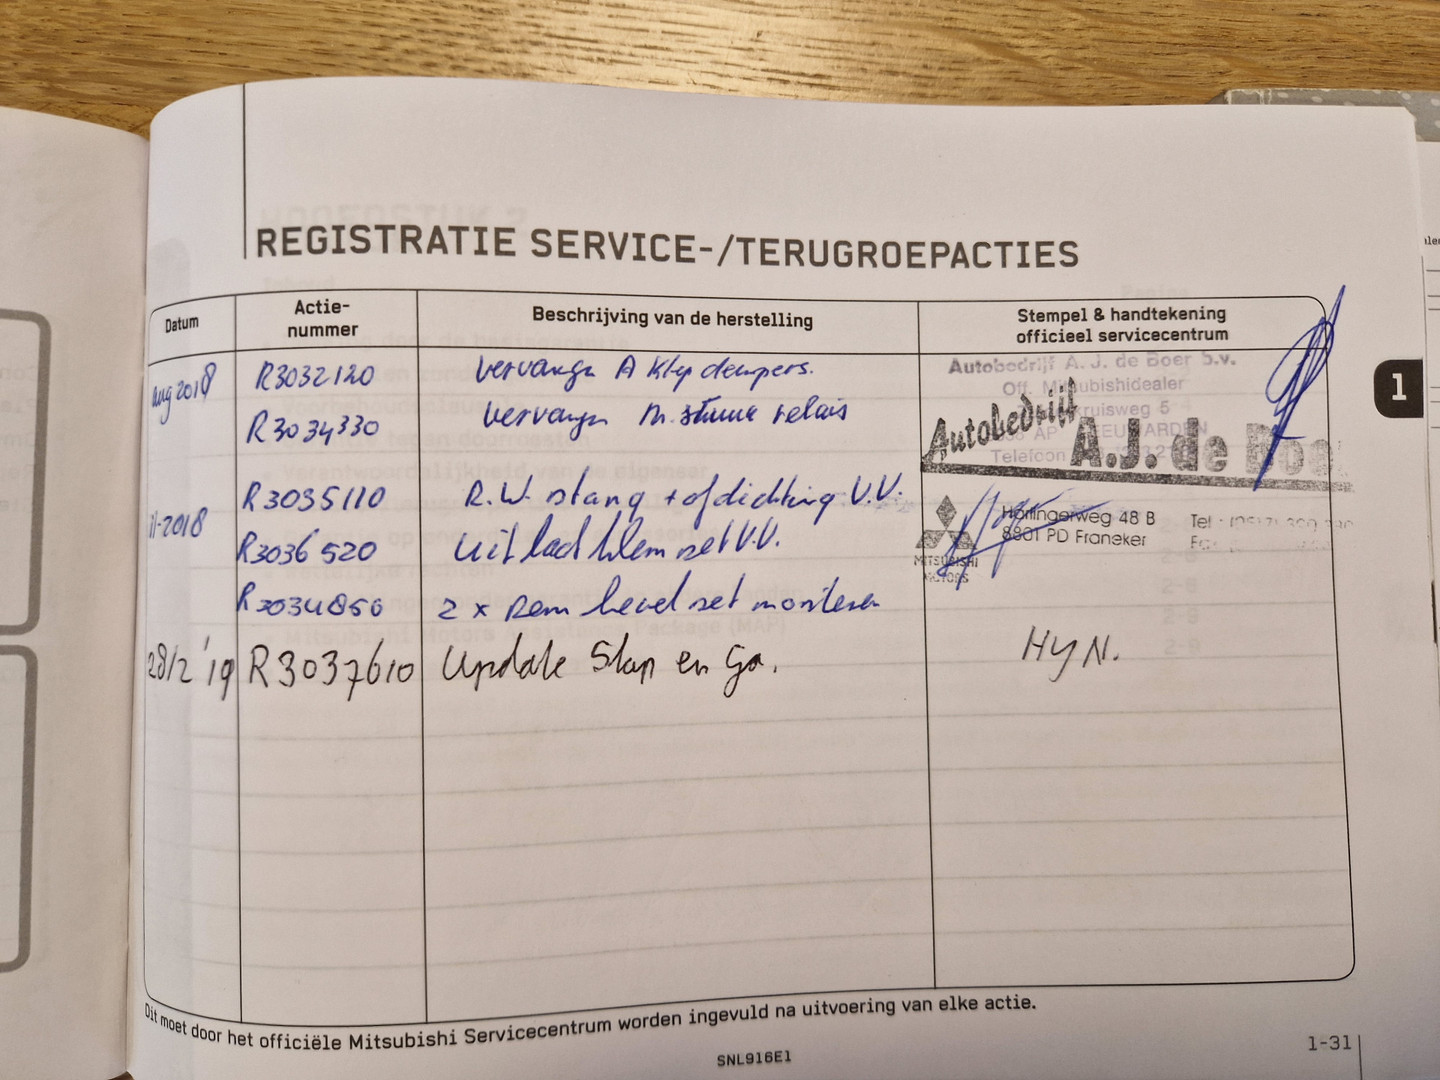 REGISTRATIE SERVICE-/TERUGROEPACTIES
Datum
Actie-
nummer
Beschrijving van de herstelling
Stempel & handtekening
officieel servicecentrum
Aug 2018 R3032120 Vervangen A Klep dempers.
R3034330 Vervangen M. stuur relais
R3035110 R.W. stang + afdichting V.V.
2018 R3036520 Uitlaat klem set V.V.
R3034850 2 x Rem hevel set monteren
28/2 '19 R3037610 Update Stop en Go.
Autobedrijf A. J. de Boer B.v.
Off. Mitsubishidealer
kruisweg 5
AP LEEUWARDEN
Telefoon
Autobedrijf A.J. de Boe
Harlingerweg 48 B
8801 PD Franeker
Tel
MITSUBISHI
MOTORS
HyN.
1
Dit moet door het officiële Mitsubishi Servicecentrum worden ingevuld na uitvoering van elke actie.
SNL916E1
1-31